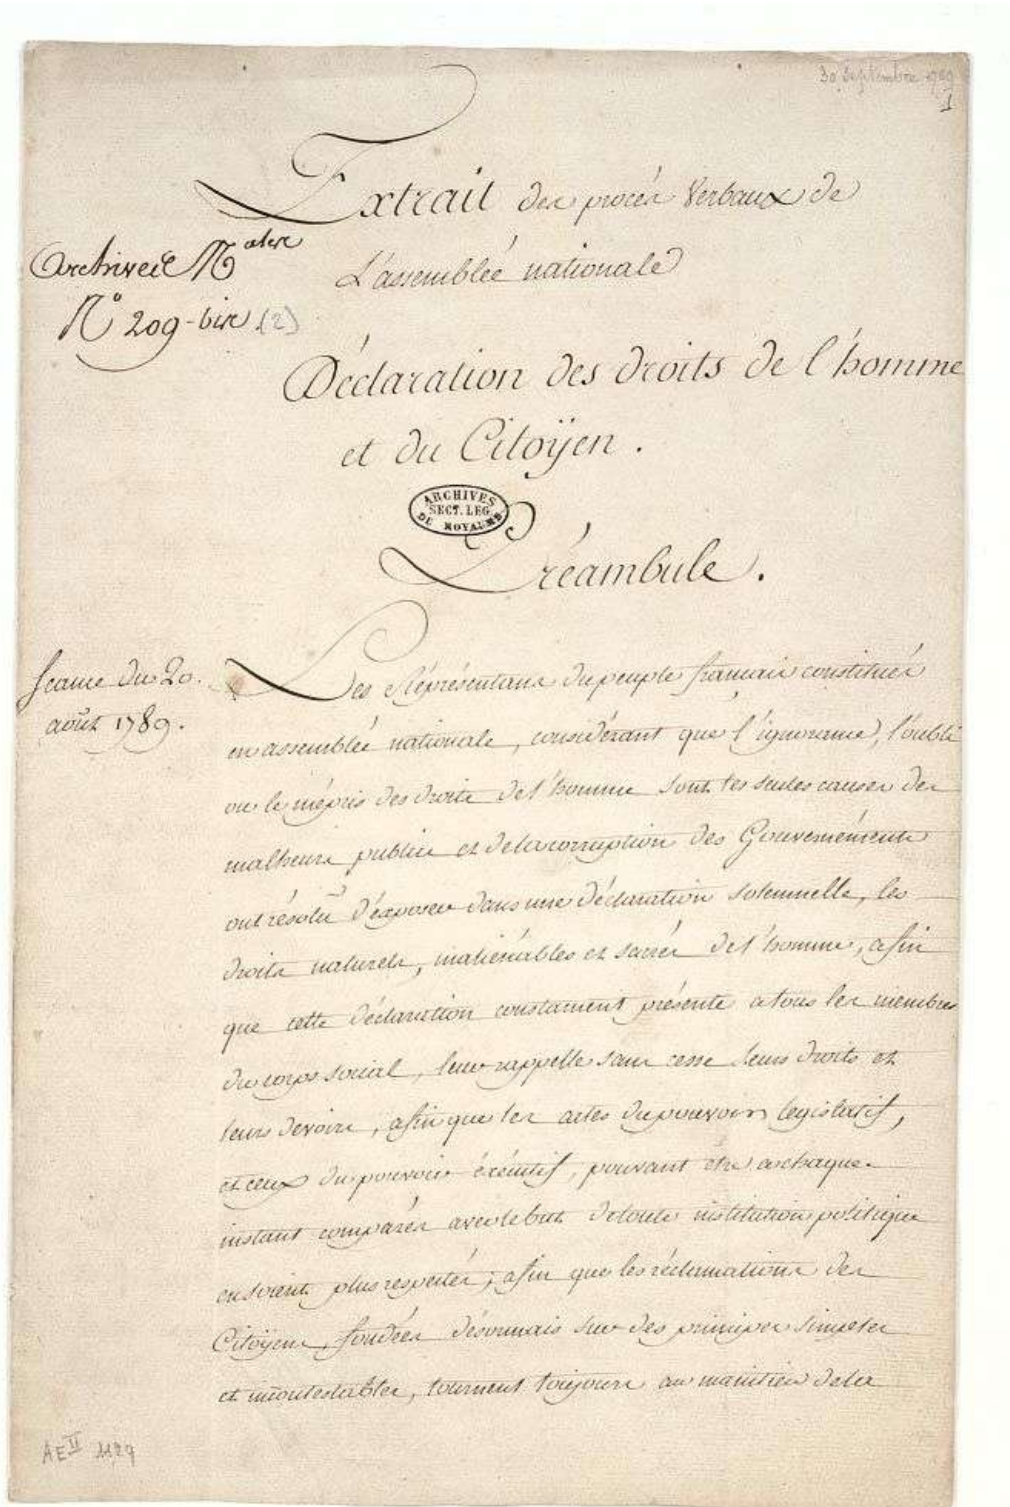 30 Septembre 1789
1
Extrait des procés Verbaux de
L'assemblée nationale
Archives Males
N° 209-bis (2)
Déclaration des droits de l'homme
et du Citoÿen.
ARCHIVES
SECT. LEG.
DU ROYAUME
Préambule.
Seance du 20.
août 1789.
Les Réprésentans du peuple francais constitués
en assemblée nationale, considérant que l'ignorance, l'oubli
ou le mépris des droits de l'homme sont les seules causes des
malheurs publics et de la corruption des Gouvernéments
ont résolu d'éxposer dans une déclaration solemnelle, les
droits naturels, inaliénables et sacrés de l'homme, afin
que cette déclaration constament présente a tous les membres
du corps social, leur rappelle sans cesse leurs droits et
leurs devoirs, afin que les actes du pouvoir legislatif,
et ceux du pouvoir éxécutif, pouvant etre a chaque
instant comparés avec le but de toute institution politique
en soient plus respectés; afin que les réclamations des
Citoÿens, fondées désormais sur des principes simples
et incontestables, tournent toujours au maintien de la
AE II 1129